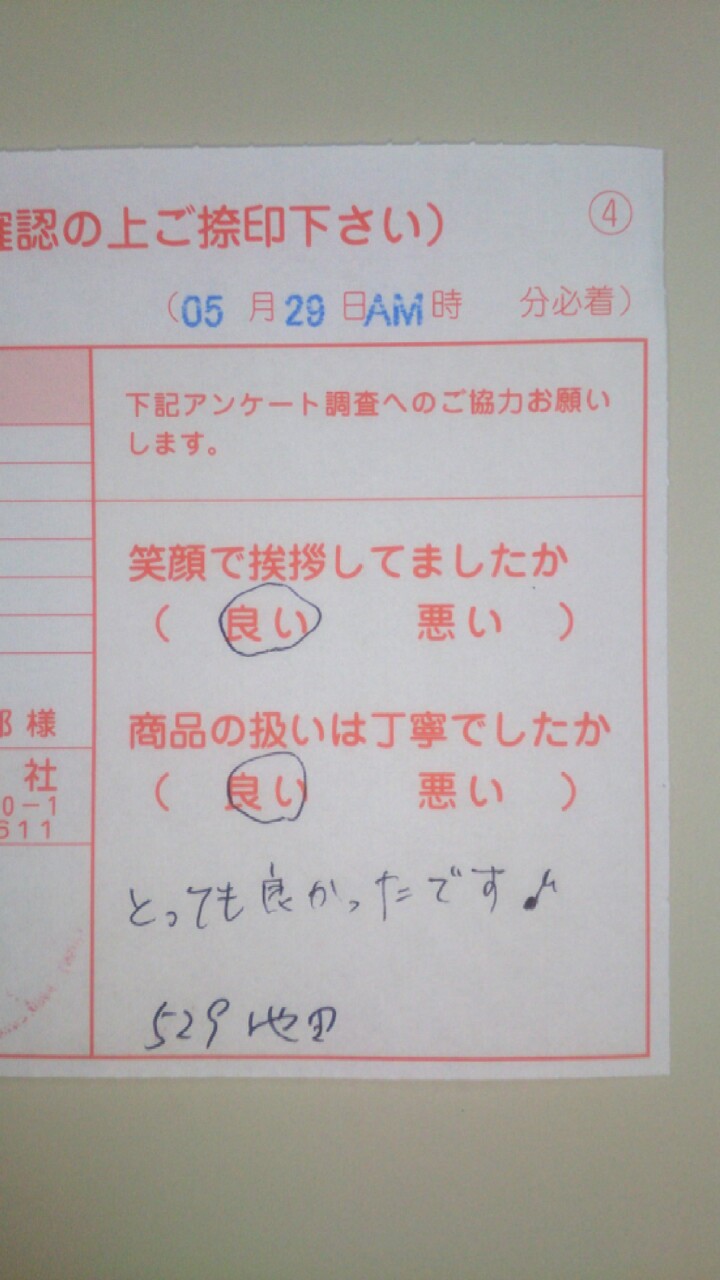 確認の上ご捺印下さい）
④
（05月29日AM時 分必着）
下記アンケート調査へのご協力お願い
します。
笑顔で挨拶してましたか
（ 良い 悪い ）
商品の扱いは丁寧でしたか
（ 良い 悪い ）
郎様
社
0-1
611
とっても良かったです♪
529 池田